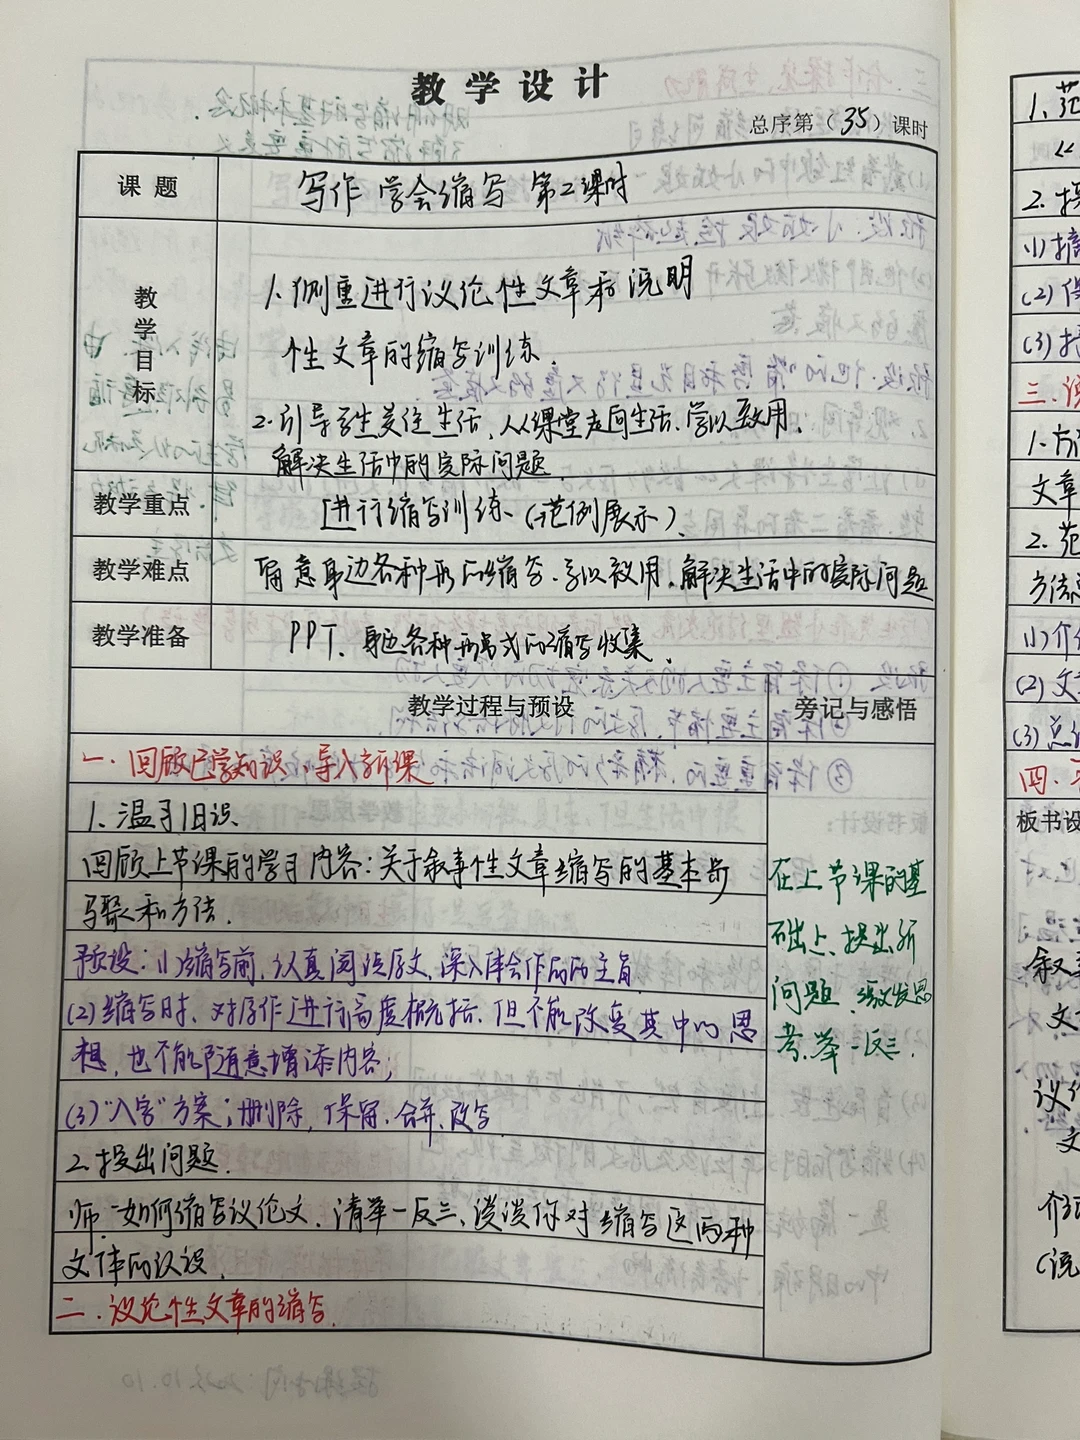 教学设计
总序第（35）课时
课题
写作 学会缩写 第二课时
教学目标
1.侧重进行议论性文章和说明
性文章的缩写训练.
2.引导学生关注生活,从课堂走向生活.学以致用.
解决生活中的实际问题
教学重点
进行缩写训练（范例展示）.
教学难点
留意身边各种形的缩写.学以致用.解决生活中的实际问题
教学准备
PPT、身边各种形式的缩写收集.
教学过程与预设
旁记与感悟
一.回顾已学知识,导入新课
1.温习旧识
回顾上节课的学习内容:关于叙事性文章缩写的基本步
骤和方法.
预设:(1)缩写前,认真阅读原文,深入体会作品的主旨
(2)缩写时,对原作进行高度概括.但不能改变其中的思
想,也不能随意增添内容;
(3)"八字"方案;删除,保留.合并.改写
2.提出问题.
师:如何缩写议论文.请举一反三,谈谈你对缩写这两种
文体的认识.
二.议论性文章的缩写.
在上节课的基
础上、提出新
问题.激发思
考.举一反三.
1.范
2.
(1)摘
(2)保
(3)
三.说
1.方
文章
2.范
方法
(1)介
(2)文
(3)点
四.
板书设
叙
文
议
文
介
(说